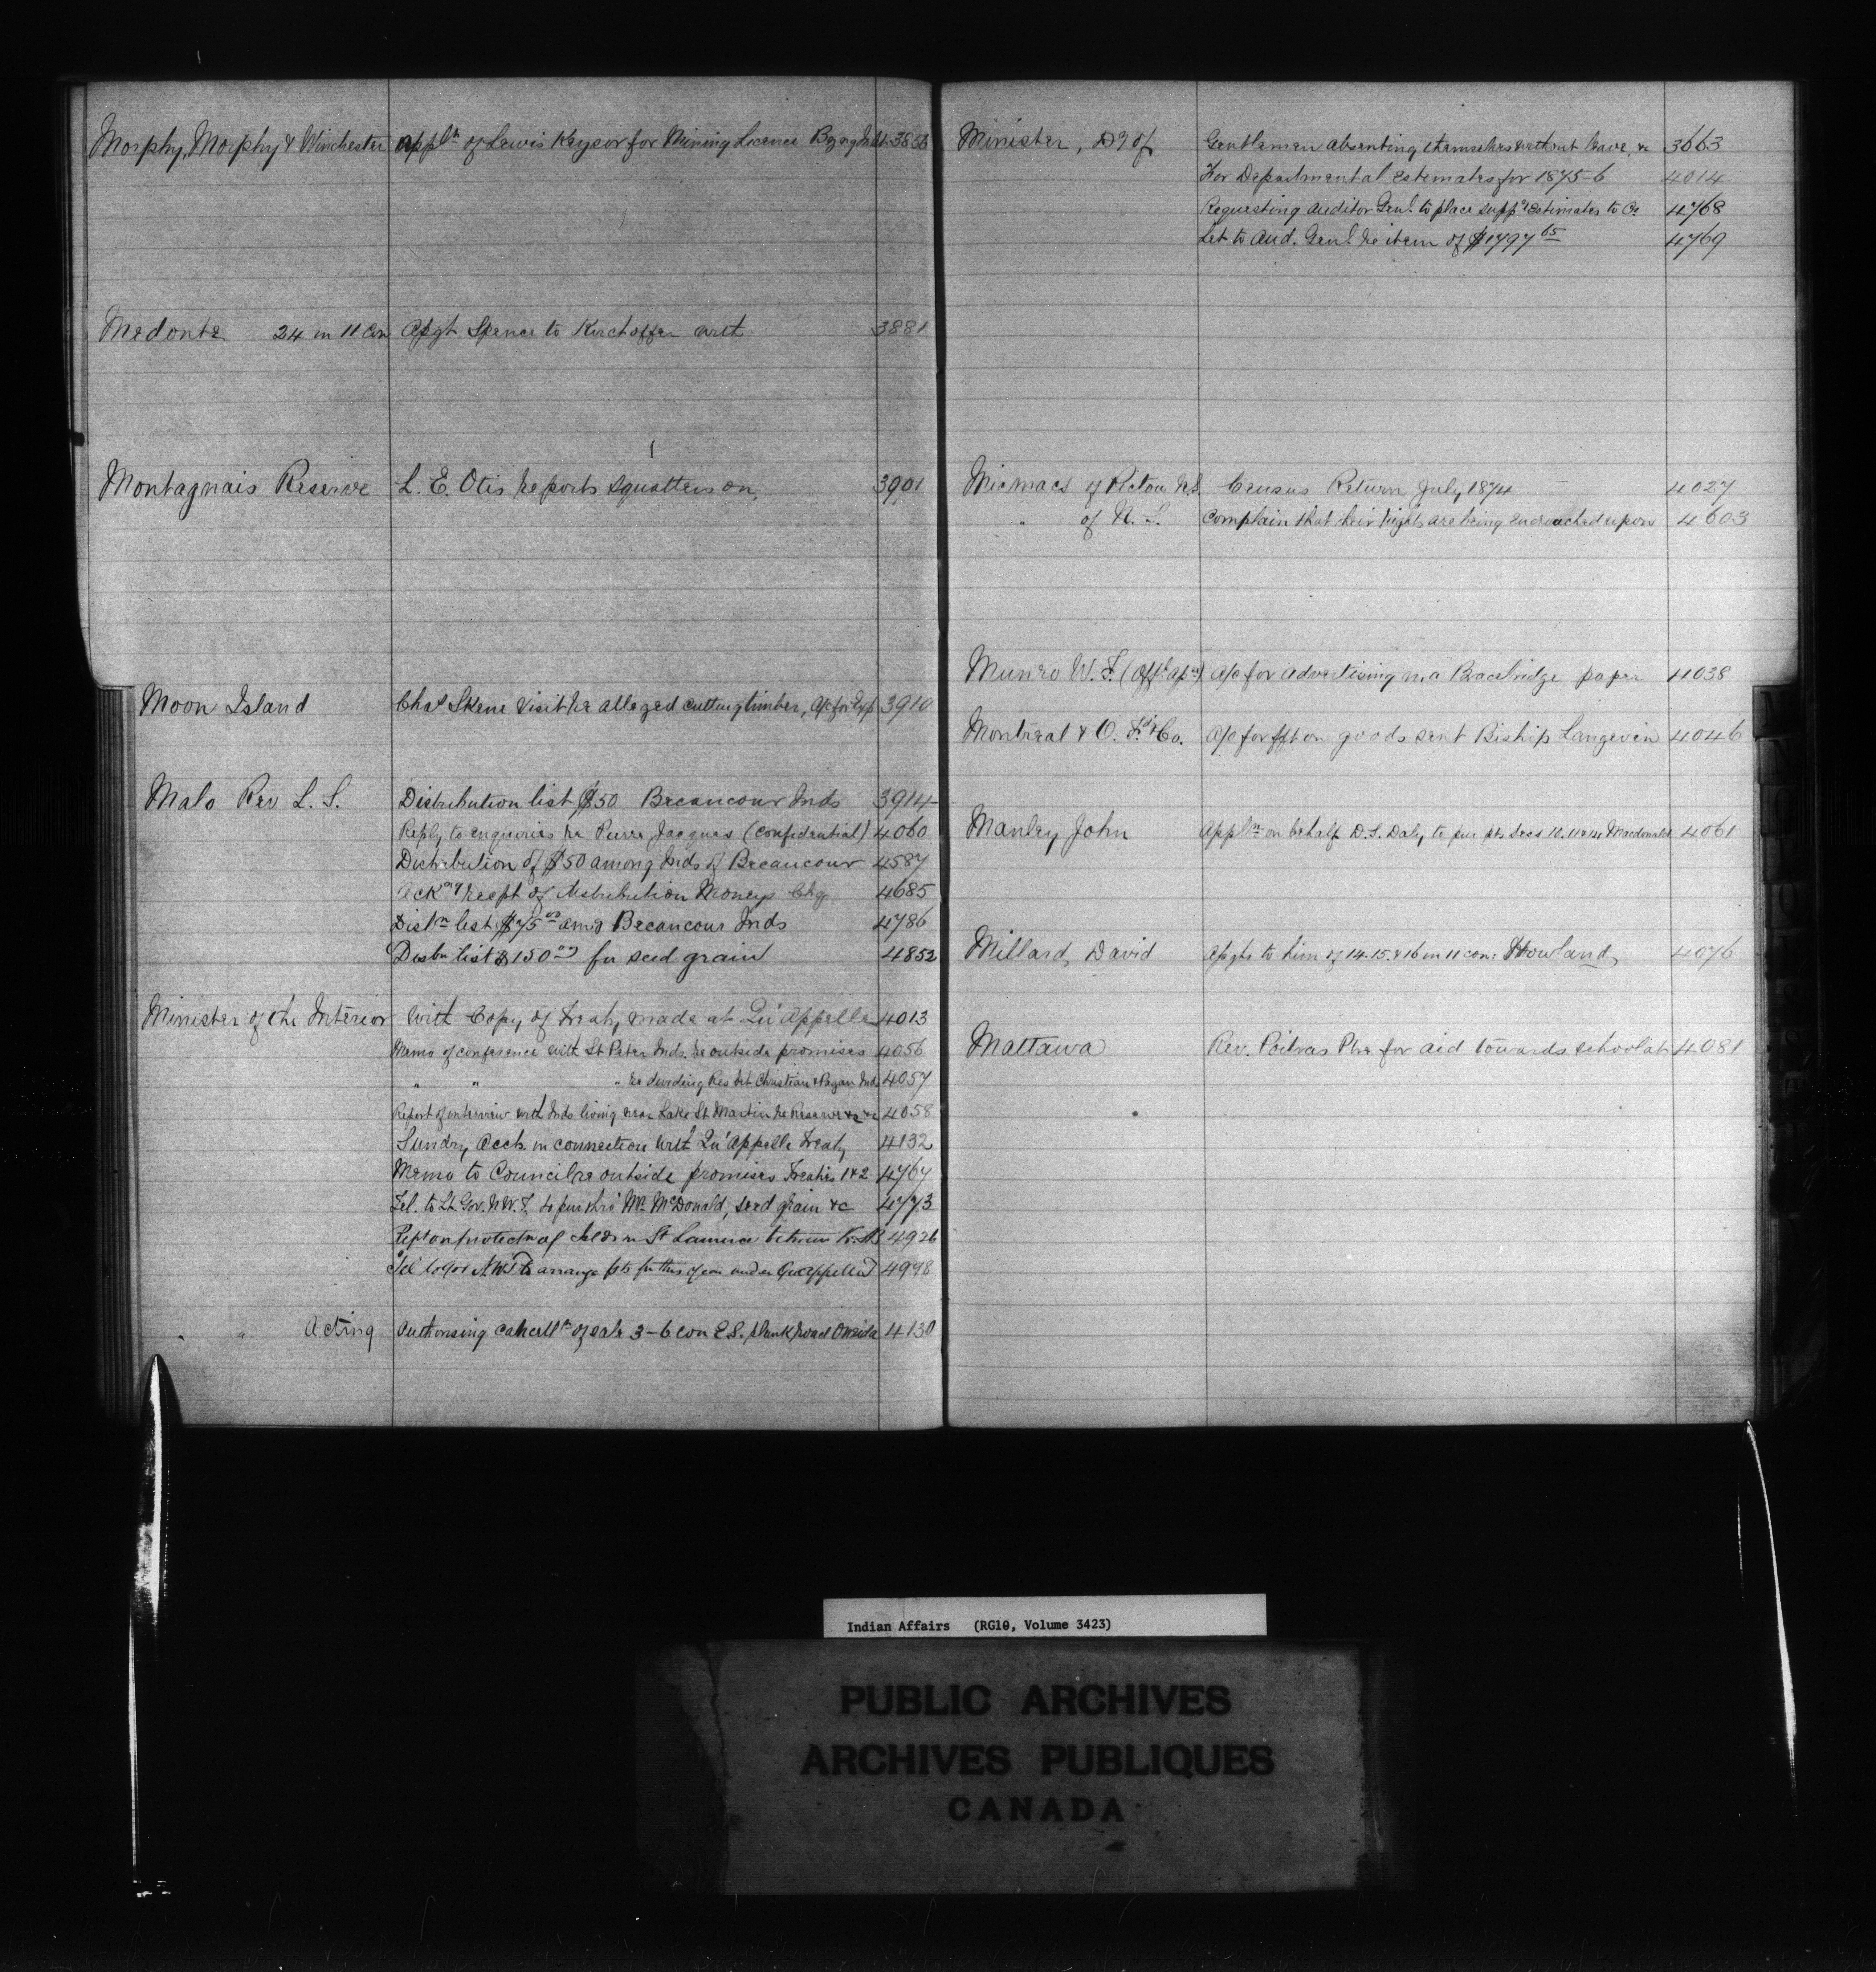 Morphy, Morphy & Winchester Appln of Lewis Keysor for Mining Licence 3856
Medonte 24 in 11 Con Assgt Spence to Kirchoffer with 3881
Montagnais Reserve L. E. Otis reports squatters on, 3901
Moon Island Chas Skene Visit re alleged cutting timber, a/c for Exp 3910
Malo Rev L. S. Distribution list $50 Becancour Inds 3914
Reply to enquiries re Pierre Jacques (confidential) 4060
Distribution of $50 among Inds of Becancour 4587
Ackng receipt of distribution Moneys Chq 4685
Distn list $75 00 amg Becancour Inds 4786
Distbn list $150 00 for seed grain 4852
Minister of the Interior With Copy of Treaty made at Qu'Appelle 4013
Memo of conference with St Peter Inds. re outside promises 4056
" " " re dividing Res bet Christian & Pagan Inds 4057
Report of interview with Inds living near Lake St Martin re Reserve &c &c 4058
Sundry Accts. in connection with Qu'Appelle Treaty 4132
Memo to Council re outside promises Treaties 1 & 2 4767
Tel. to Lt. Gov. N.W.T. to pur thro' Mr McDonald, seed grain &c 4773
Rept on protectn of Islds in St Lawrence between K. & B 4926
Tel to Gov N.W.T to arrange for this year under Qu'appelle T 4998
" Acting Authorising cancelltn of sale 3-6 con E.S. plank road Oneida 4130
Minister, Dy of Gentlemen absenting themselves without leave, &c 3663
For Departmental estimates for 1875-6 4014
Requesting Auditor Genl. to place suppy Estimates to Cr 4768
Let to Aud. Genl. re item of $1797 65 4769
Micmacs of Pictou N.S. Census Return July, 1874 4027
" of N. S. Complain that their rights are being encroached upon 4603
Munro W. F. a/c for advertising in a Bracebridge paper 4038
Montreal & O. Fd & Co. a/c for frt on goods sent Biship Langevin 4046
Manley John Appln on behalf D. S. Daly to pur pts Secs 10. 11 & 14 Macdonald 4061
Millard, David Assgts to him of 14. 15. & 16 in 11 con: Howland, 4076
Mattawa Rev. Poitras Ptre for aid towards school at 4081
Indian Affairs (RG10, Volume 3423)
PUBLIC ARCHIVES
ARCHIVES PUBLIQUES
CANADA